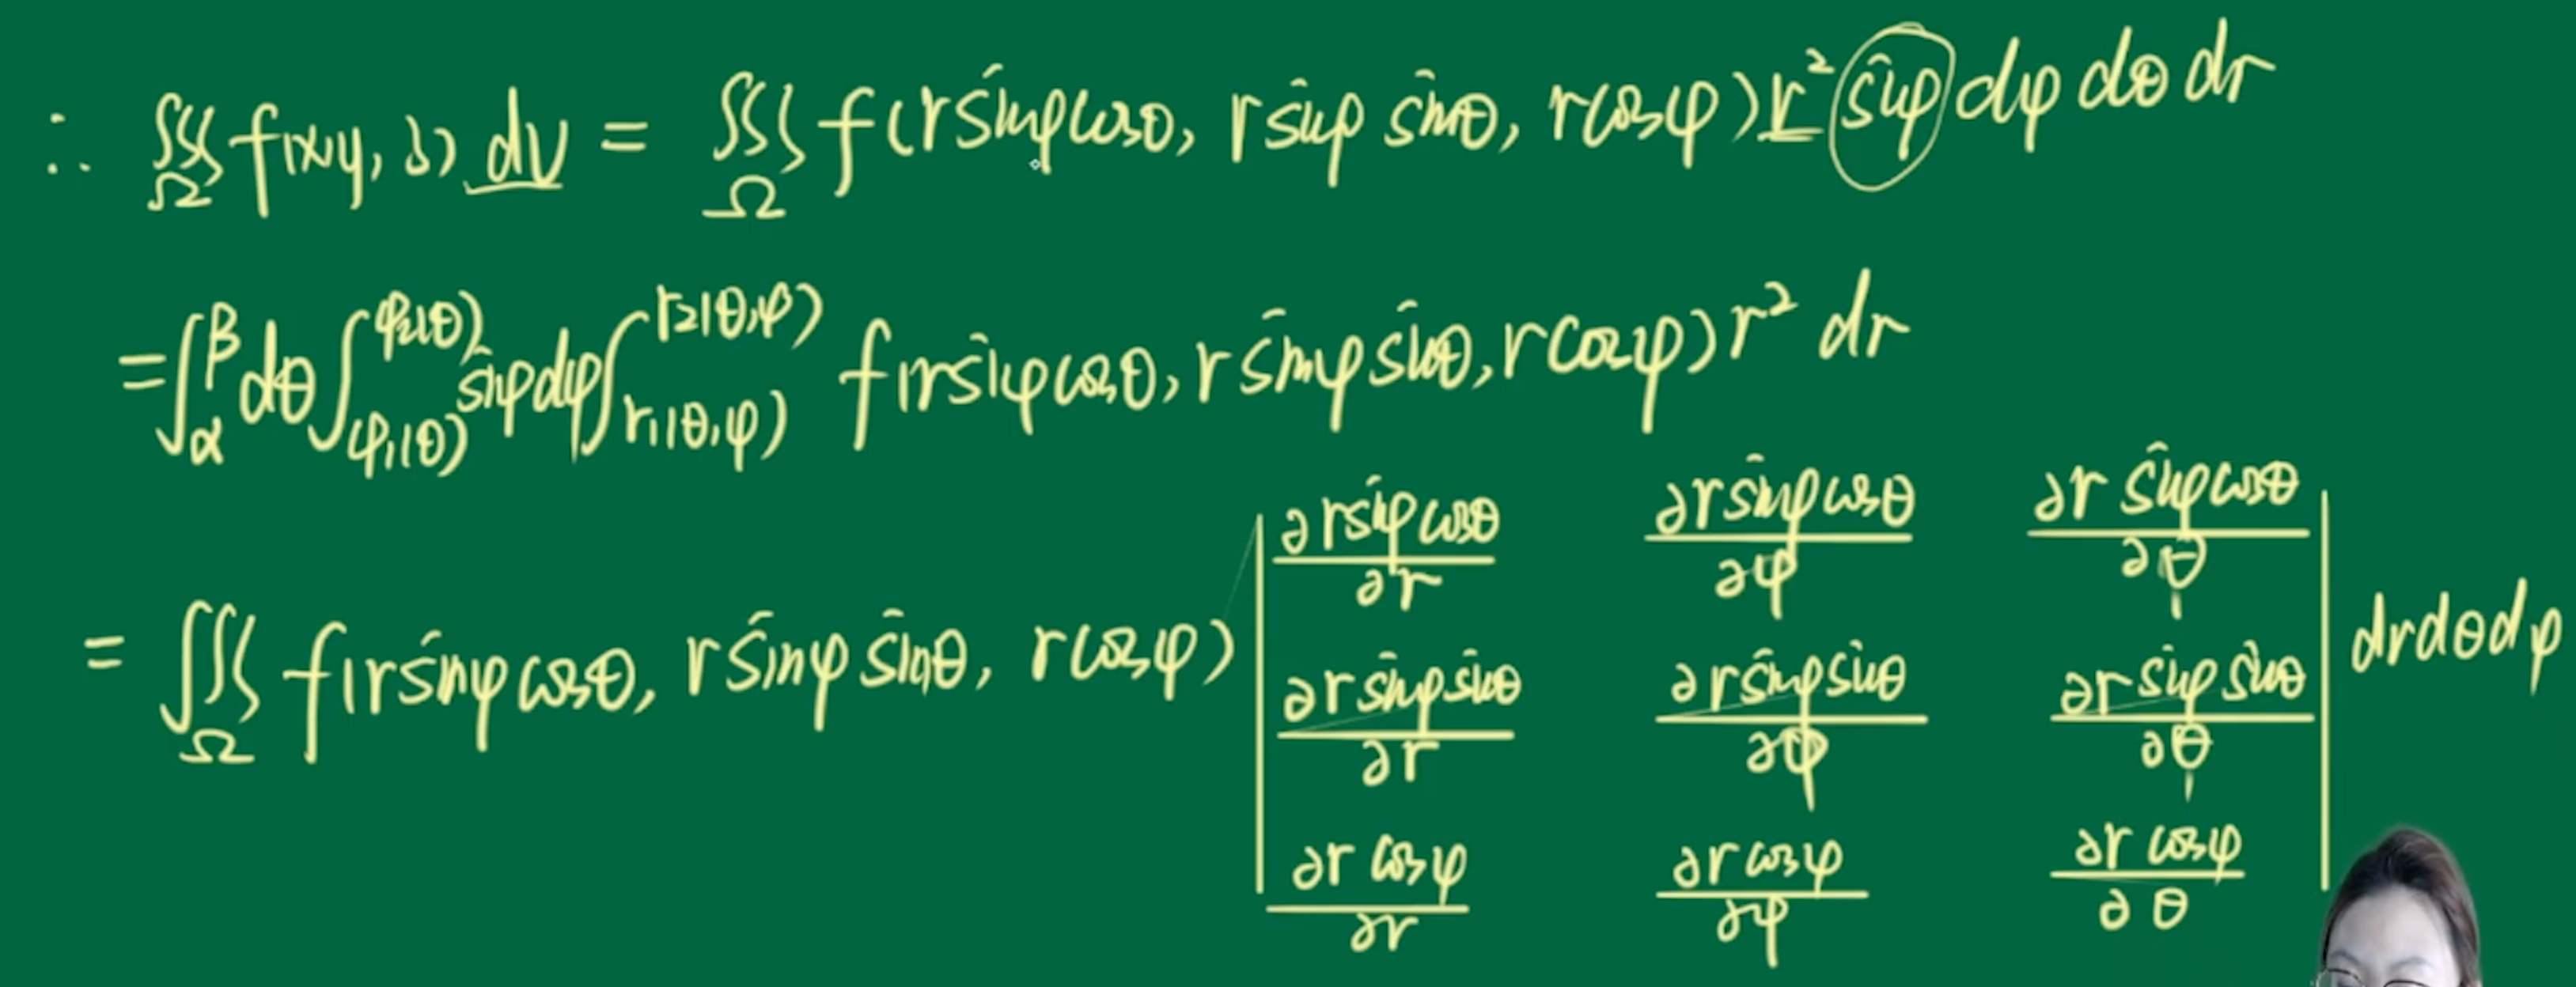 ∴ ∭_Ω f(x,y,z) dv = ∭_Ω f(r sinφ cosθ, r sinφ sinθ, r cosφ) r² sinφ dφ dθ dr
= ∫_α^β dθ ∫_{φ₁(θ)}^{φ₂(θ)} sinφ dφ ∫_{r₁(θ,φ)}^{r₂(θ,φ)} f(r sinφ cosθ, r sinφ sinθ, r cosφ) r² dr
= ∭_Ω f(r sinφ cosθ, r sinφ sinθ, r cosφ) | ∂r sinφ cosθ/∂r   ∂r sinφ cosθ/∂φ   ∂r sinφ cosθ/∂θ
∂r sinφ sinθ/∂r   ∂r sinφ sinθ/∂φ   ∂r sinφ sinθ/∂θ
∂r cosφ/∂r   ∂r cosφ/∂φ   ∂r cosφ/∂θ | dr dθ dφ